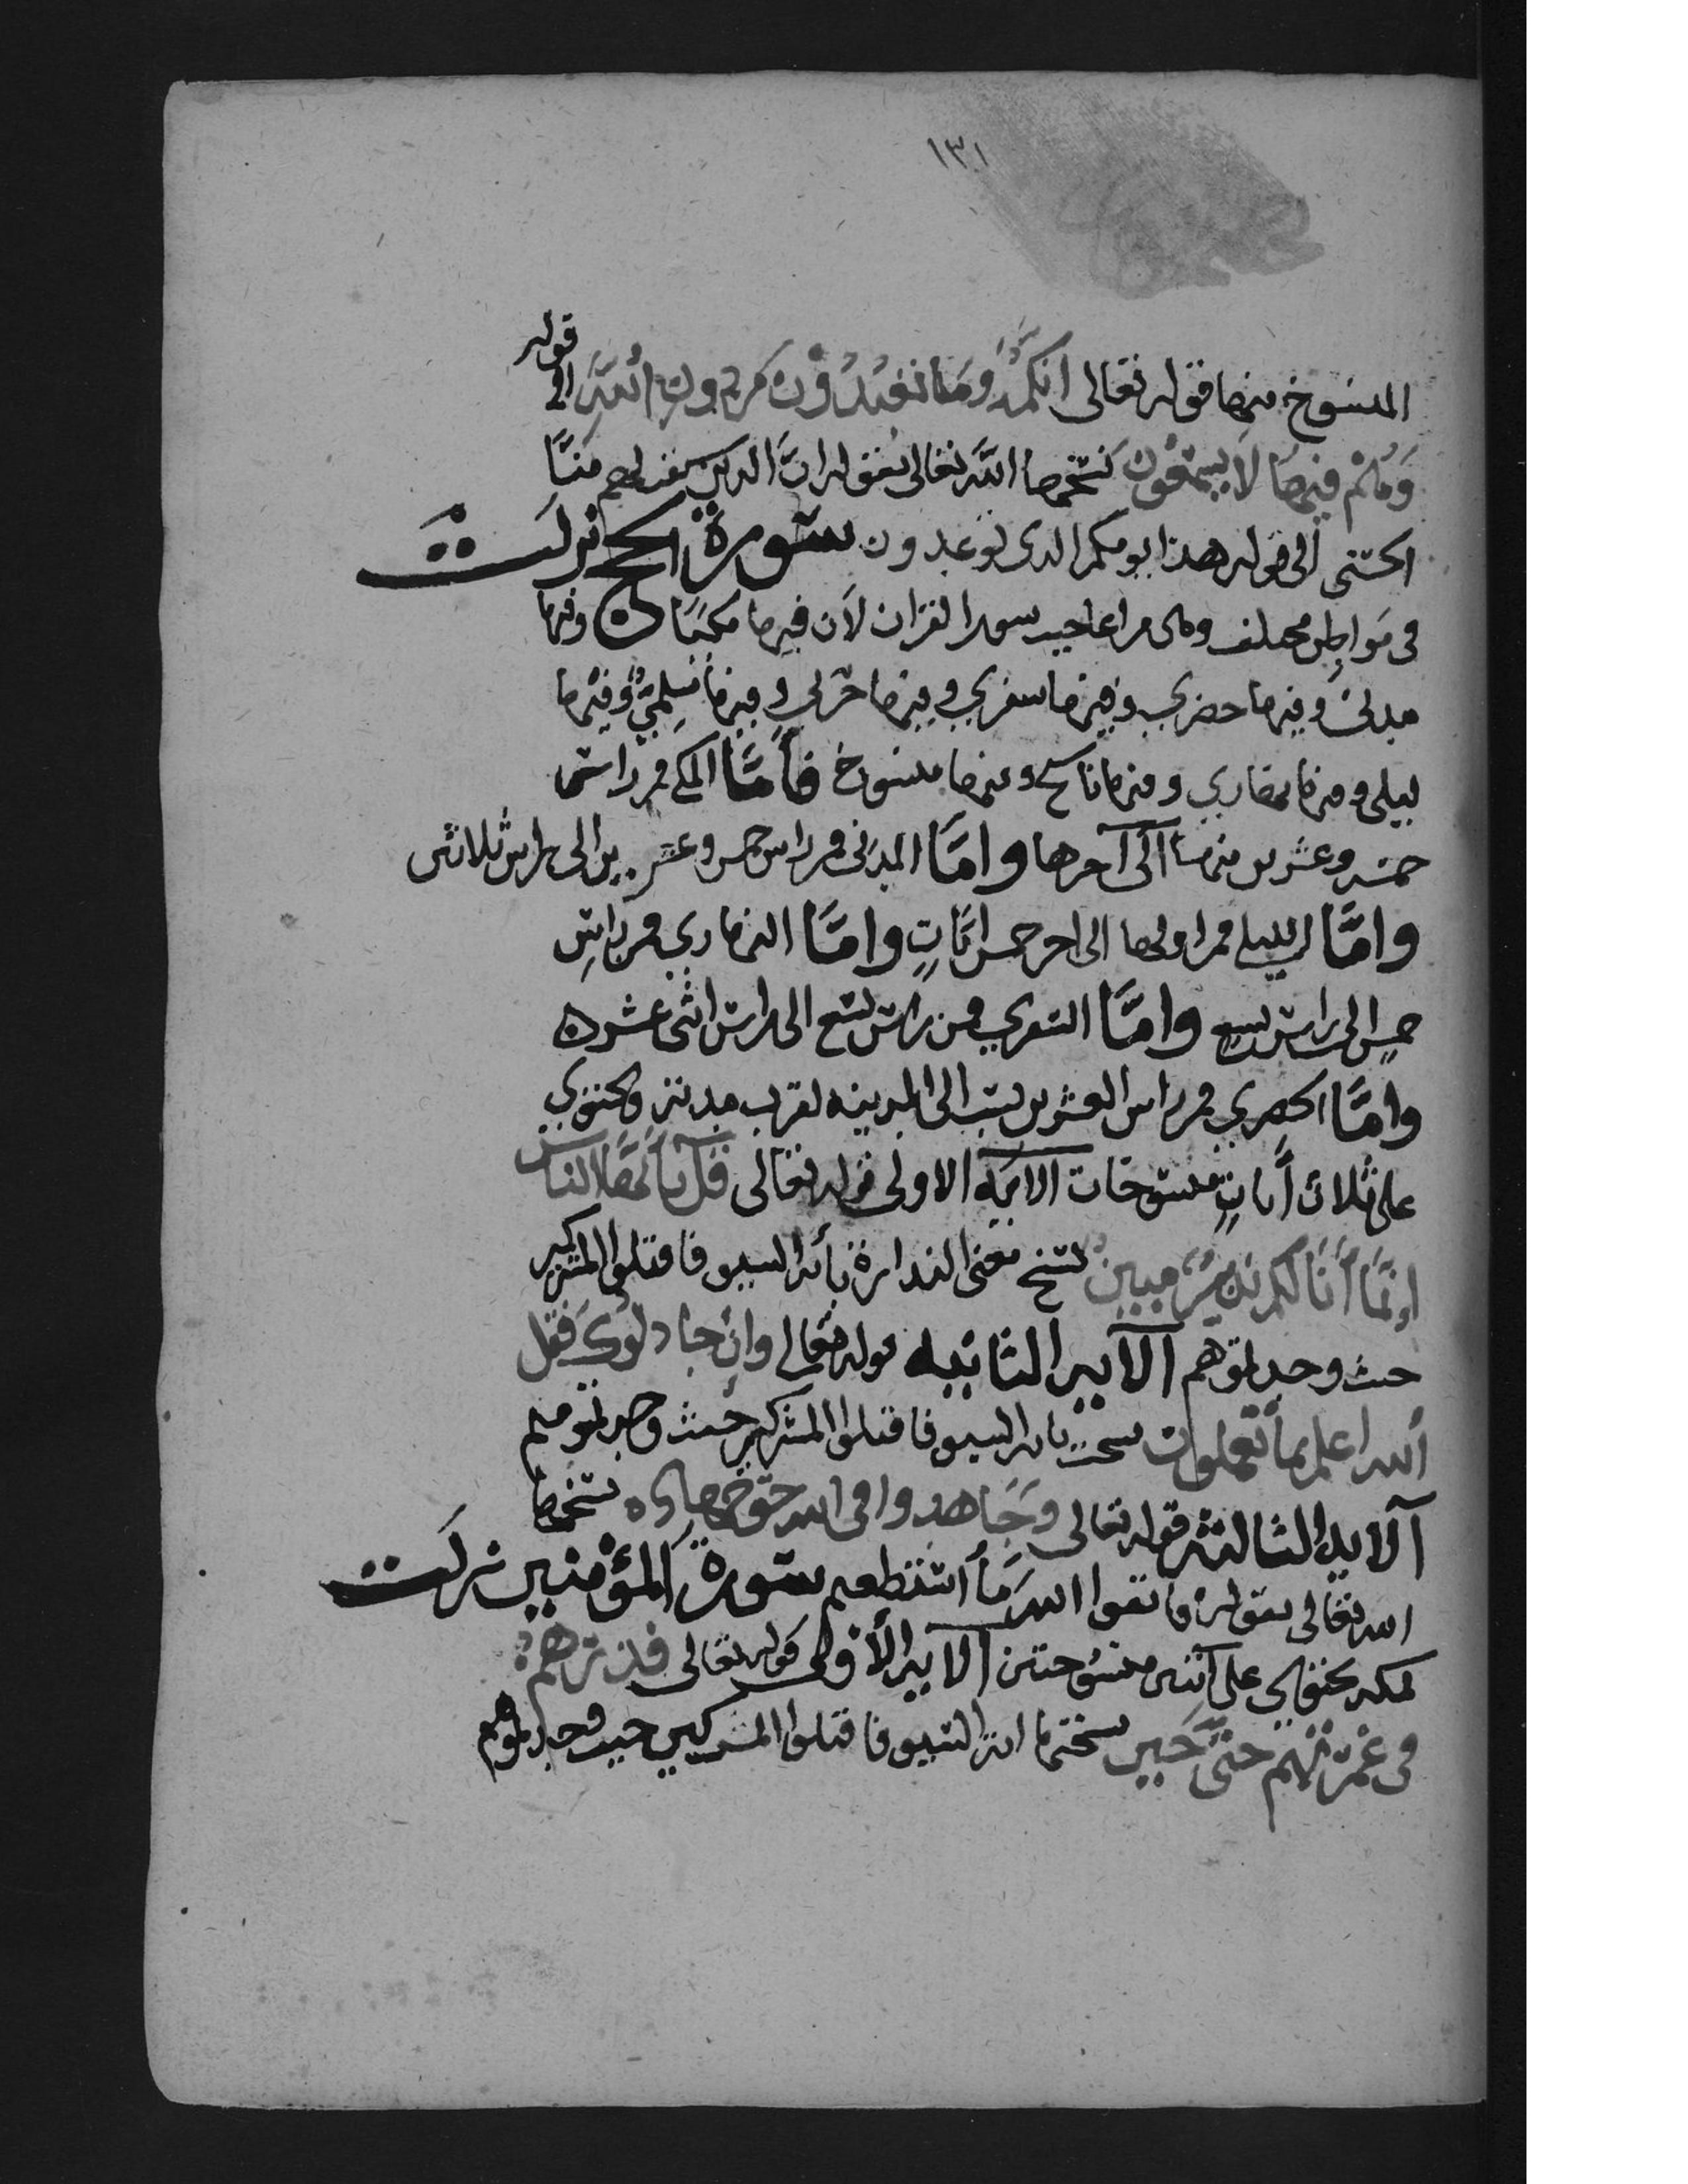 ١٣١
المنسوخ منها فقوله تعالى انكم وما تعبدون من دون الله الى قوله
وهم فيها لا يسمعون نسخها الله تعالى بقوله ان الذين سبقت لهم منا
الحسنى الى قوله هذا يومكم الذى توعدون سورة الحج نزلت
فى مواطن مختلفه وهى من اعاجيب سور القران لان فيها مكيا وفيها
مدنى وفيها حضري وفيها سفري وفيها حربي وفيها سلمي وفيها
ليلى وفيها نهاري وفيها ناسخ وفيها منسوخ فأما المكي فمن راس
خمسه وعشرين منها الى آخرها واما المدنى فمن راس خمس وعشرين الى راس ثلاثين
واما الليلى فمن اولها الى اخر خمس ايات واما النهاري فمن راس
خمس الى راس تسع واما السفري فمن راس تسع الى راس اثنى عشره
واما الحضري فمن راس العشرين نسب الى المدينه لقرب مدته وتحتوي
على ثلاث أيات منسوخات الايه الاولى قوله تعالى قل يا أيها الناس
إنما أنا لكم نذير مبين نسخ معنى النذارة بأية السيف فاقتلوا المشركين
حيث وجدتموهم الآيه الثانيه قوله تعالى وان جادلوك فقل
الله اعلم بما تعملون نسخت باية السيف فاقتلوا المشركين حيث وجدتموهم
آلايه الثالثه قوله تعالى وجاهدوا فى الله حق جهاده نسخها
الله تعالى بقوله فاتقوا الله ما استطعتم سورة المؤمنين نزلت
بمكه تحتوى على آيتين منسوختين الآيه الأولى قوله تعالى فذرهم
فى غمرتهم حتى حين نسختها اية السيف فاقتلوا المشركين حيث وجدتموهم